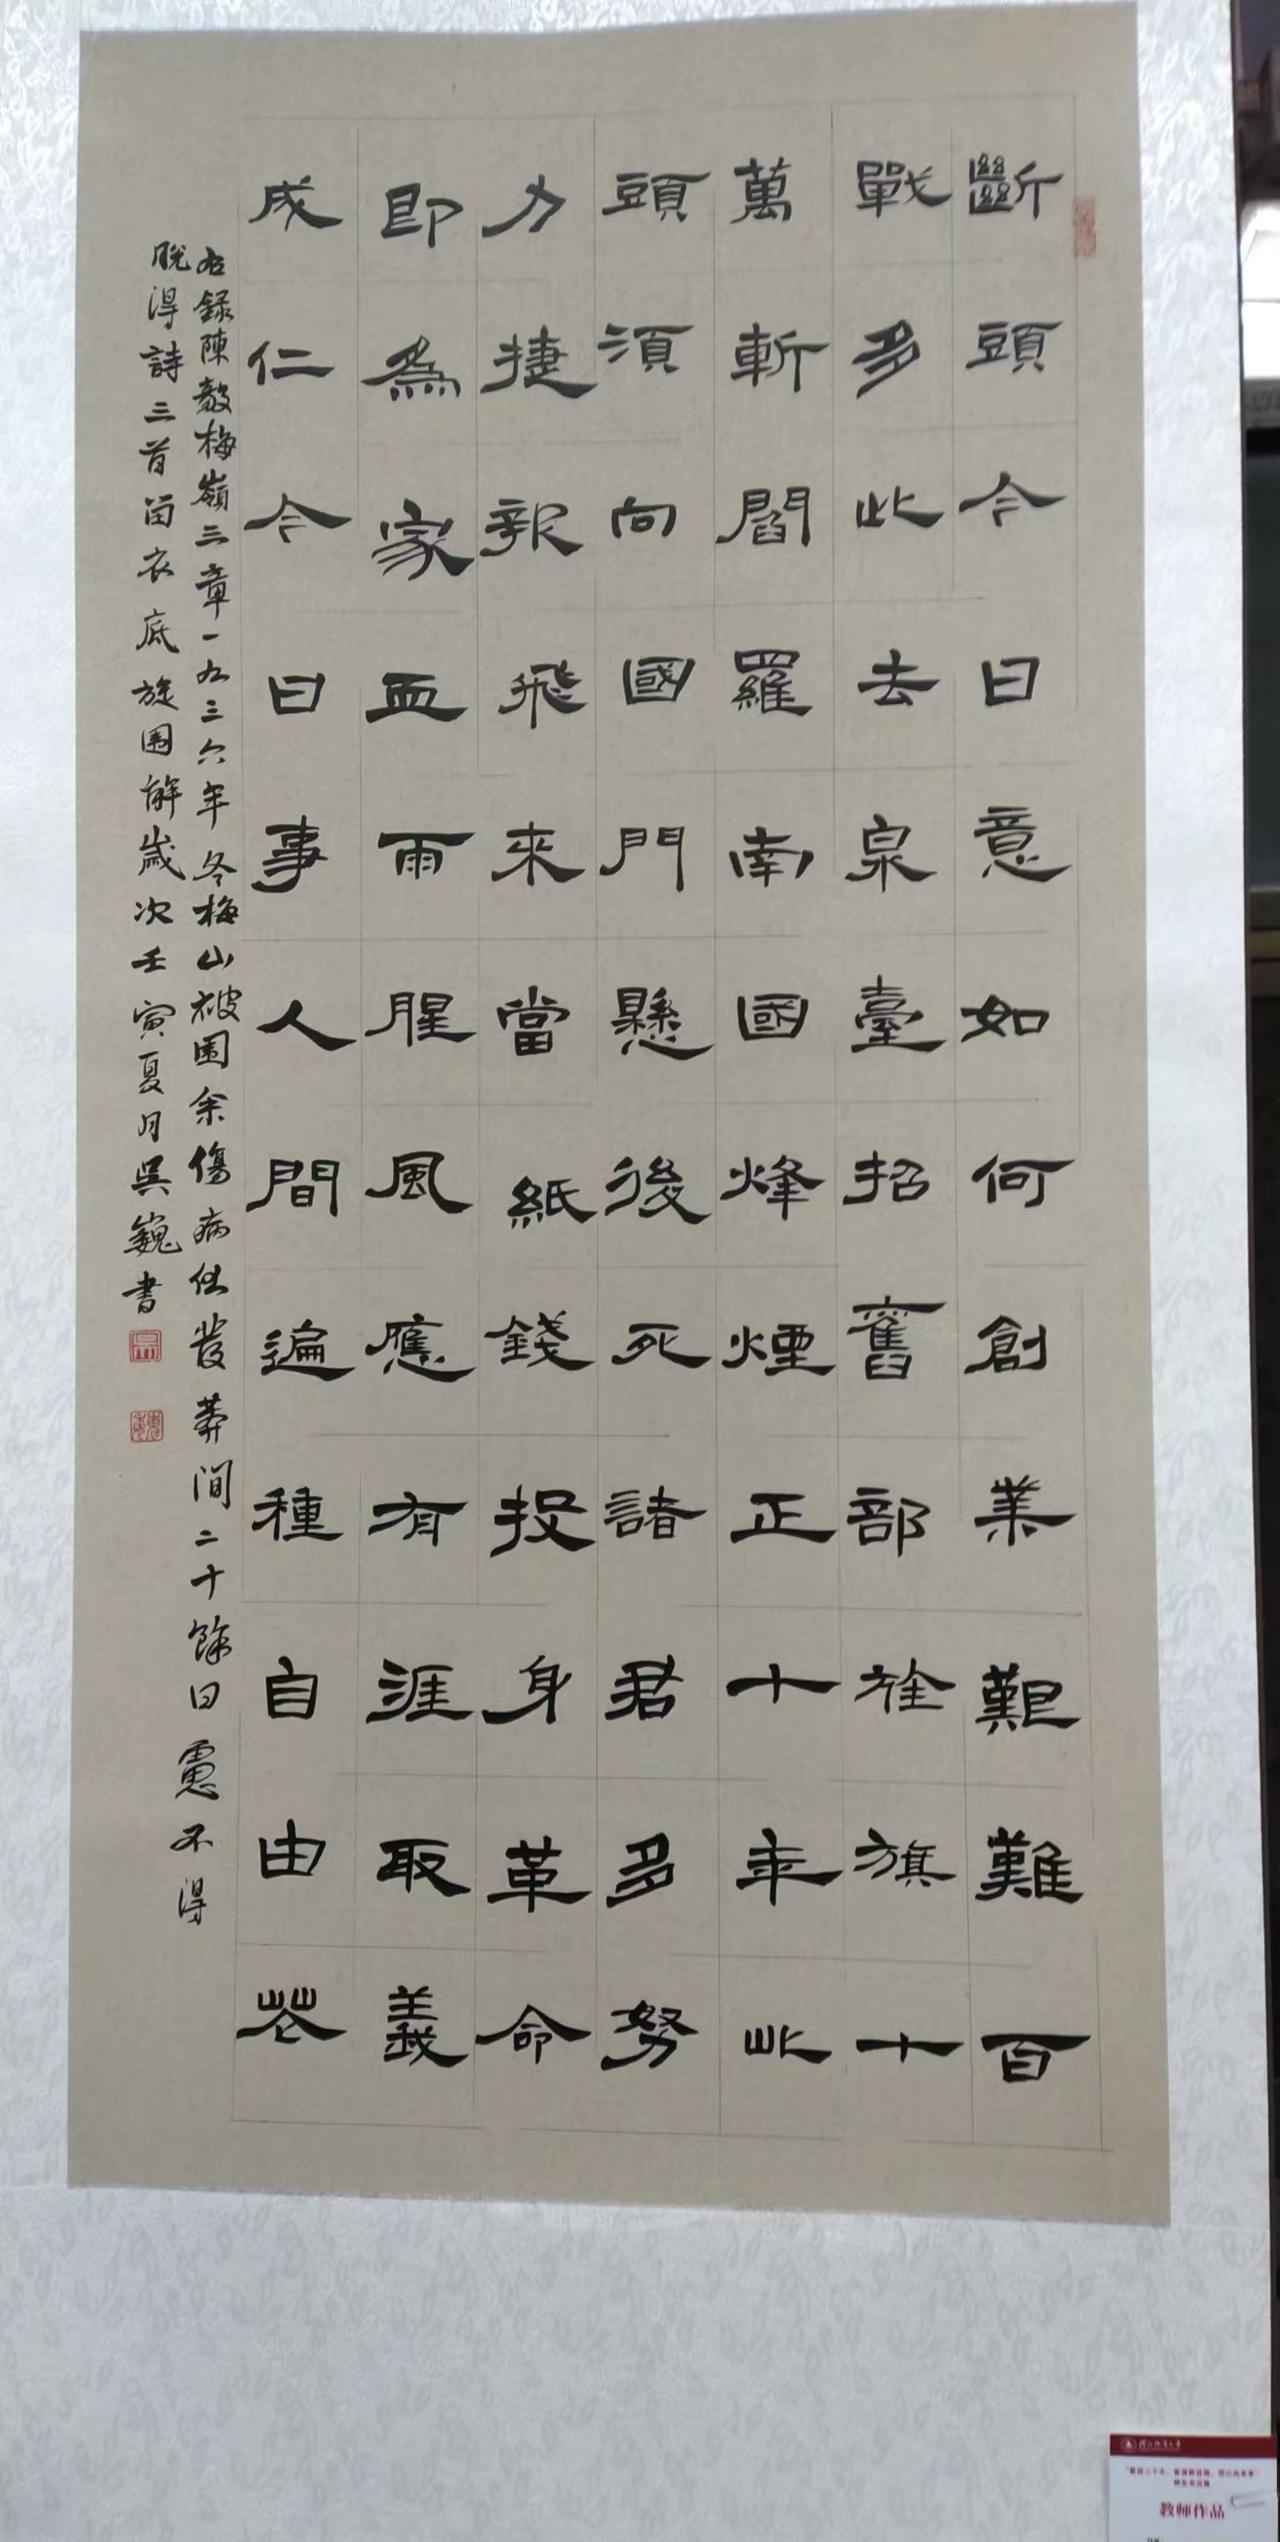 斷頭今日意如何創業艱難百
戰多此去泉臺招舊部旌旗十
萬斬閻羅南國烽煙正十年此
頭須向國門懸後死諸君多努
力捷報飛來當紙錢投身革命
即為家血雨腥風應有涯取義
成仁今日事人間遍種自由花
右錄陳毅梅嶺三章一九三六年冬梅山被围余傷病伏叢莽间二十餘日慮不得
脫得詩三首留衣底旋围解歲次壬寅夏月吳巍書
教师作品